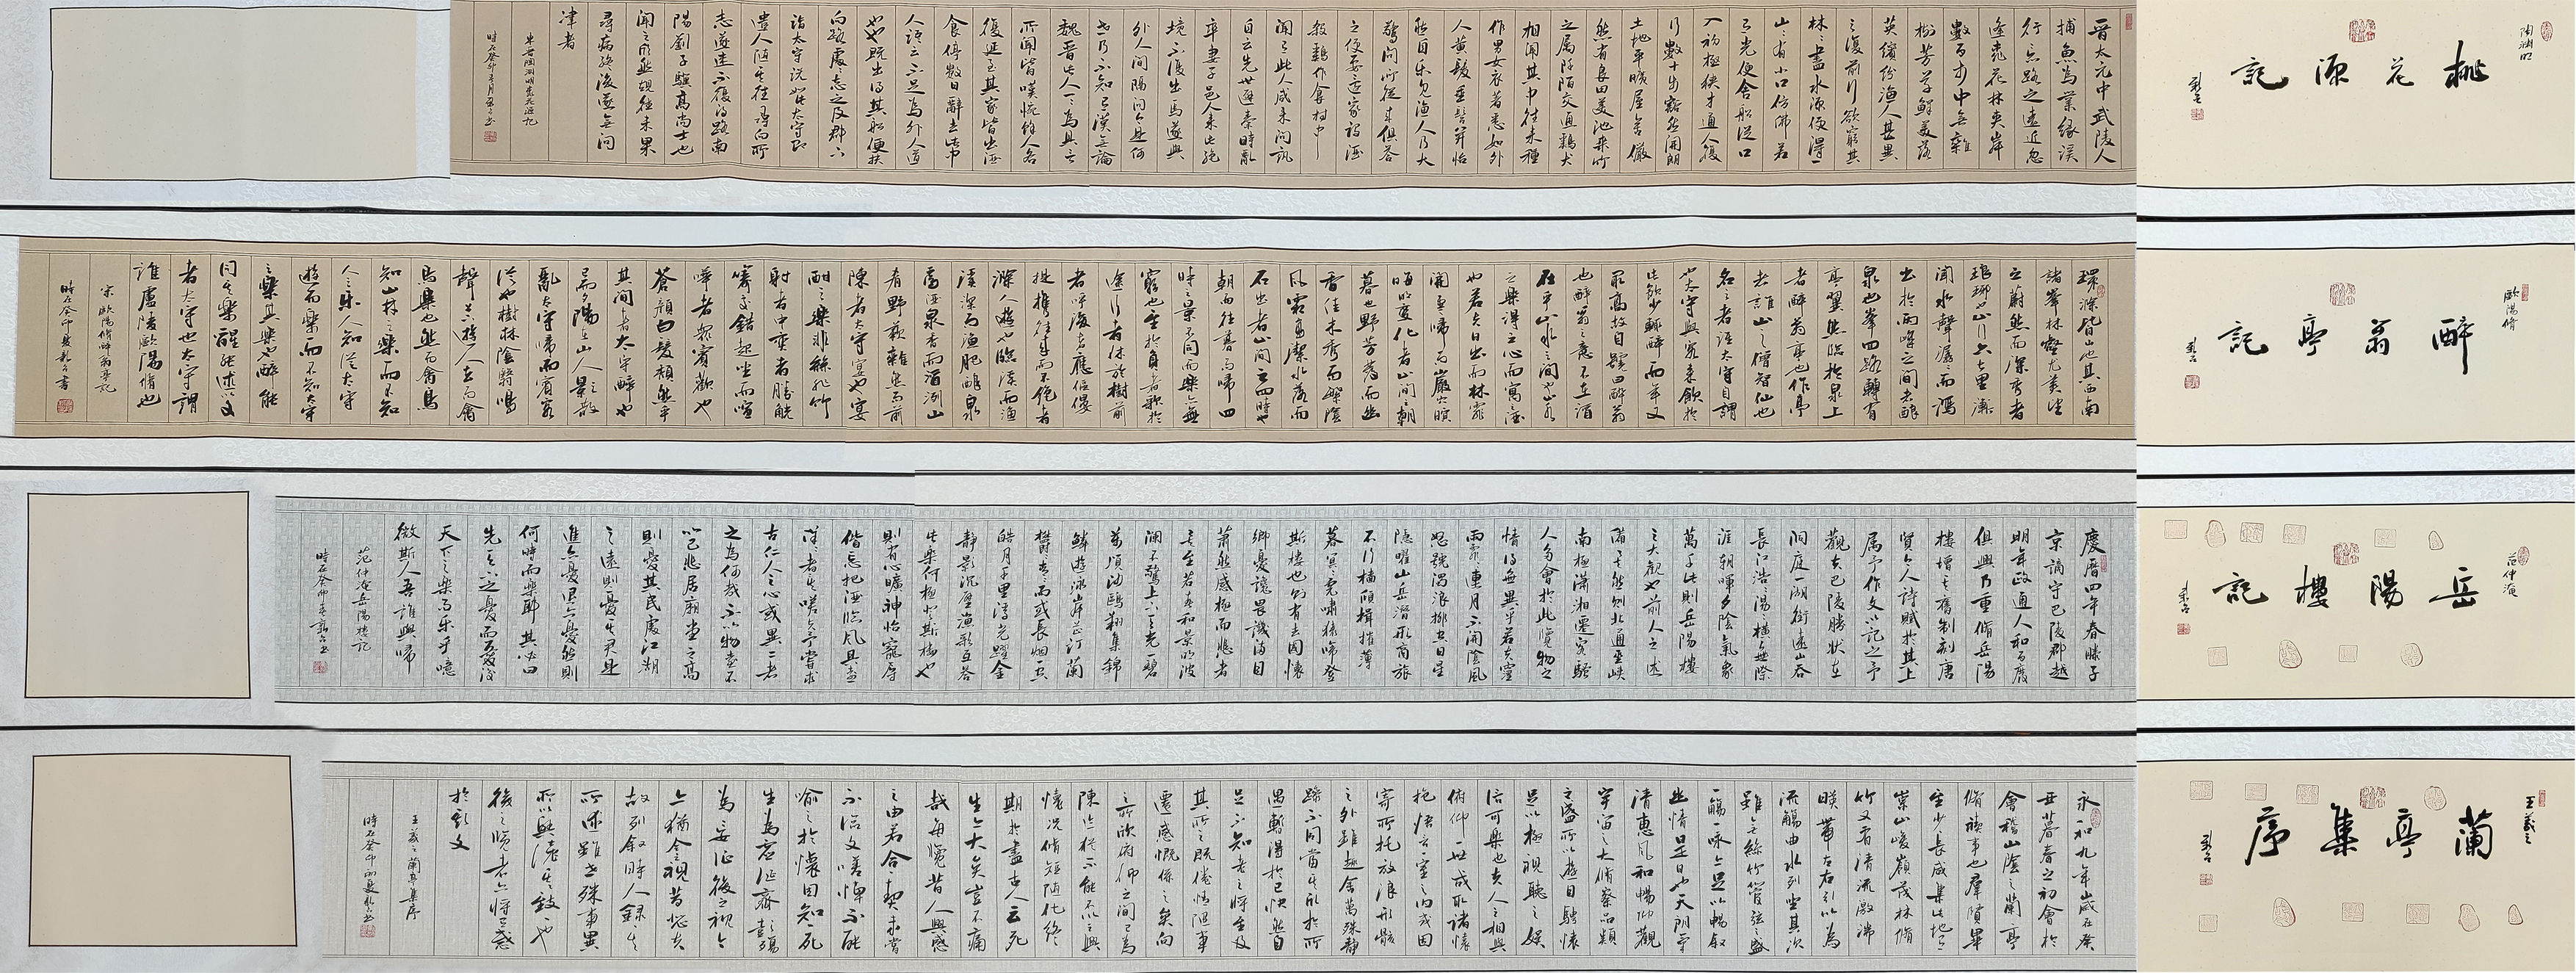 陶淵明
桃花源記
晉太元中武陵人
捕魚為業緣溪
行忘路之遠近忽
逢桃花林夾岸
數百步中無雜
樹芳草鮮美落
英繽紛漁人甚異
之復前行欲窮其
林林盡水源便得一
山山有小口彷彿若
有光便舍船從口
入初極狹才通人復
行數十步豁然開朗
土地平曠屋舍儼
然有良田美池桑竹
之屬阡陌交通雞犬
相聞其中往來種
作男女衣著悉如外
人黃髮垂髫並怡
然自樂見漁人乃大
驚問所從來具答
之便要還家設酒
殺雞作食村中
聞有此人咸來問訊
自云先世避秦時亂
率妻子邑人來此絕
境不復出焉遂與
外人間隔問今是何
世乃不知有漢無論
魏晉此人一一為具言
所聞皆嘆惋餘人各
復延至其家皆出酒
食停數日辭去此中
人語云不足為外人道
也既出得其船便扶
向路處處志之及郡下
詣太守說如此太守即
遣人隨其往尋向所
志遂迷不復得路南
陽劉子驥高尚士也
聞之欣然規往未果
尋病終後遂無問
津者
東晉陶淵明桃花源記
時在癸卯
歐陽脩
醉翁亭記
環滁皆山也其西南
諸峯林壑尤美望
之蔚然而深秀者
琅琊也山行六七里漸
聞水聲潺潺而瀉
出於兩峰之間者釀
泉也峯回路轉有
亭翼然臨於泉上
者醉翁亭也作亭
者誰山之僧智仙也
名之者誰太守自謂
也太守與客來飲於
此飲少輒醉而年又
最高故自號曰醉翁
也醉翁之意不在酒
在乎山水之間也山水
之樂得之心而寓之酒
也若夫日出而林霏
開雲歸而巖穴暝
晦明變化者山間之朝
暮也野芳發而幽
香佳木秀而繁陰
風霜高潔水落而
石出者山間之四時也
朝而往暮而歸四
時之景不同而樂亦無
窮也至於負者歌於
途行者休於樹前
者呼後者應傴僂
提攜往來而不絕者
滁人遊也臨溪而漁
溪深而漁肥釀泉
為酒泉香而酒洌山
肴野蔌雜然而前
陳者太守宴也宴
酣之樂非絲非竹
射者中奕者勝觥
籌交錯起坐而喧
嘩者衆賓歡也
蒼顏白髮頹然乎
其間者太守醉也
已而夕陽在山人影散
亂太守歸而賓客
從也樹林陰翳鳴
聲上下遊人去而禽
鳥樂也然而禽鳥
知山林之樂而不知
人之樂人知從太守
遊而樂而不知太守
之樂其樂也醉能
同其樂醒能述以文
者太守也太守謂
誰廬陵歐陽脩也
宋歐陽脩醉翁亭記
時在癸卯
范仲淹
岳陽樓記
慶曆四年春滕子
京謫守巴陵郡越
明年政通人和百廢
俱興乃重脩岳陽
樓增其舊制刻唐
賢今人詩賦於其上
屬予作文以記之予
觀夫巴陵勝狀在
洞庭一湖銜遠山吞
長江浩浩湯湯橫無際
涯朝暉夕陰氣象
萬千此則岳陽樓
之大觀也前人之述
備矣然則北通巫峽
南極瀟湘遷客騷
人多會於此覽物之
情得無異乎若夫霪
雨霏霏連月不開陰風
怒號濁浪排空日星
隱曜山岳潛形商旅
不行檣傾楫摧薄
暮冥冥虎嘯猿啼登
斯樓也則有去國懷
鄉憂讒畏譏滿目
蕭然感極而悲者
矣至若春和景明波
瀾不驚上下天光一碧
萬頃沙鷗翔集錦
鱗遊泳岸芷汀蘭
鬱鬱青青而或長烟一空
皓月千里浮光躍金
靜影沉璧漁歌互答
此樂何極登斯樓也
則有心曠神怡寵辱
偕忘把酒臨風其喜
洋洋者矣嗟夫予嘗求
古仁人之心或異二者
之為何哉不以物喜不
以己悲居廟堂之高
則憂其民處江湖
之遠則憂其君是
進亦憂退亦憂然則
何時而樂耶其必曰
先天下之憂而憂後
天下之樂而樂乎噫
微斯人吾誰與歸
范仲淹岳陽樓記
時在癸卯
王羲之
蘭亭集序
永和九年歲在癸
丑暮春之初會於
會稽山陰之蘭亭
脩禊事也羣賢畢
至少長咸集此地有
崇山峻嶺茂林脩
竹又有清流激湍
暎帶左右引以為
流觴曲水列坐其次
雖無絲竹管弦之盛
一觴一詠亦足以暢敘
幽情是日也天朗氣
清惠風和暢仰觀
宇宙之大俯察品類
之盛所以遊目騁懷
足以極視聽之娛
信可樂也夫人之相與
俯仰一世或取諸懷
抱悟言一室之內或因
寄所托放浪形骸
之外雖趣舍萬殊靜
躁不同當其欣於所
遇暫得於己快然自
足不知老之將至及
其所之既倦情隨事
遷感慨係之矣向
之所欣俯仰之間已為
陳迹猶不能不以之興
懷況脩短隨化終
期於盡古人云死
生亦大矣豈不痛
哉每覽昔人興感
之由若合一契未嘗
不臨文嗟悼不能
喻之於懷固知一死
生為虛誕齊彭殤
為妄作後之視今
亦猶今之視昔悲夫
故列敘時人錄其
所述雖世殊事異
所以興懷其致一也
後之覽者亦將有感
於斯文
王羲之蘭亭集序
時在癸卯